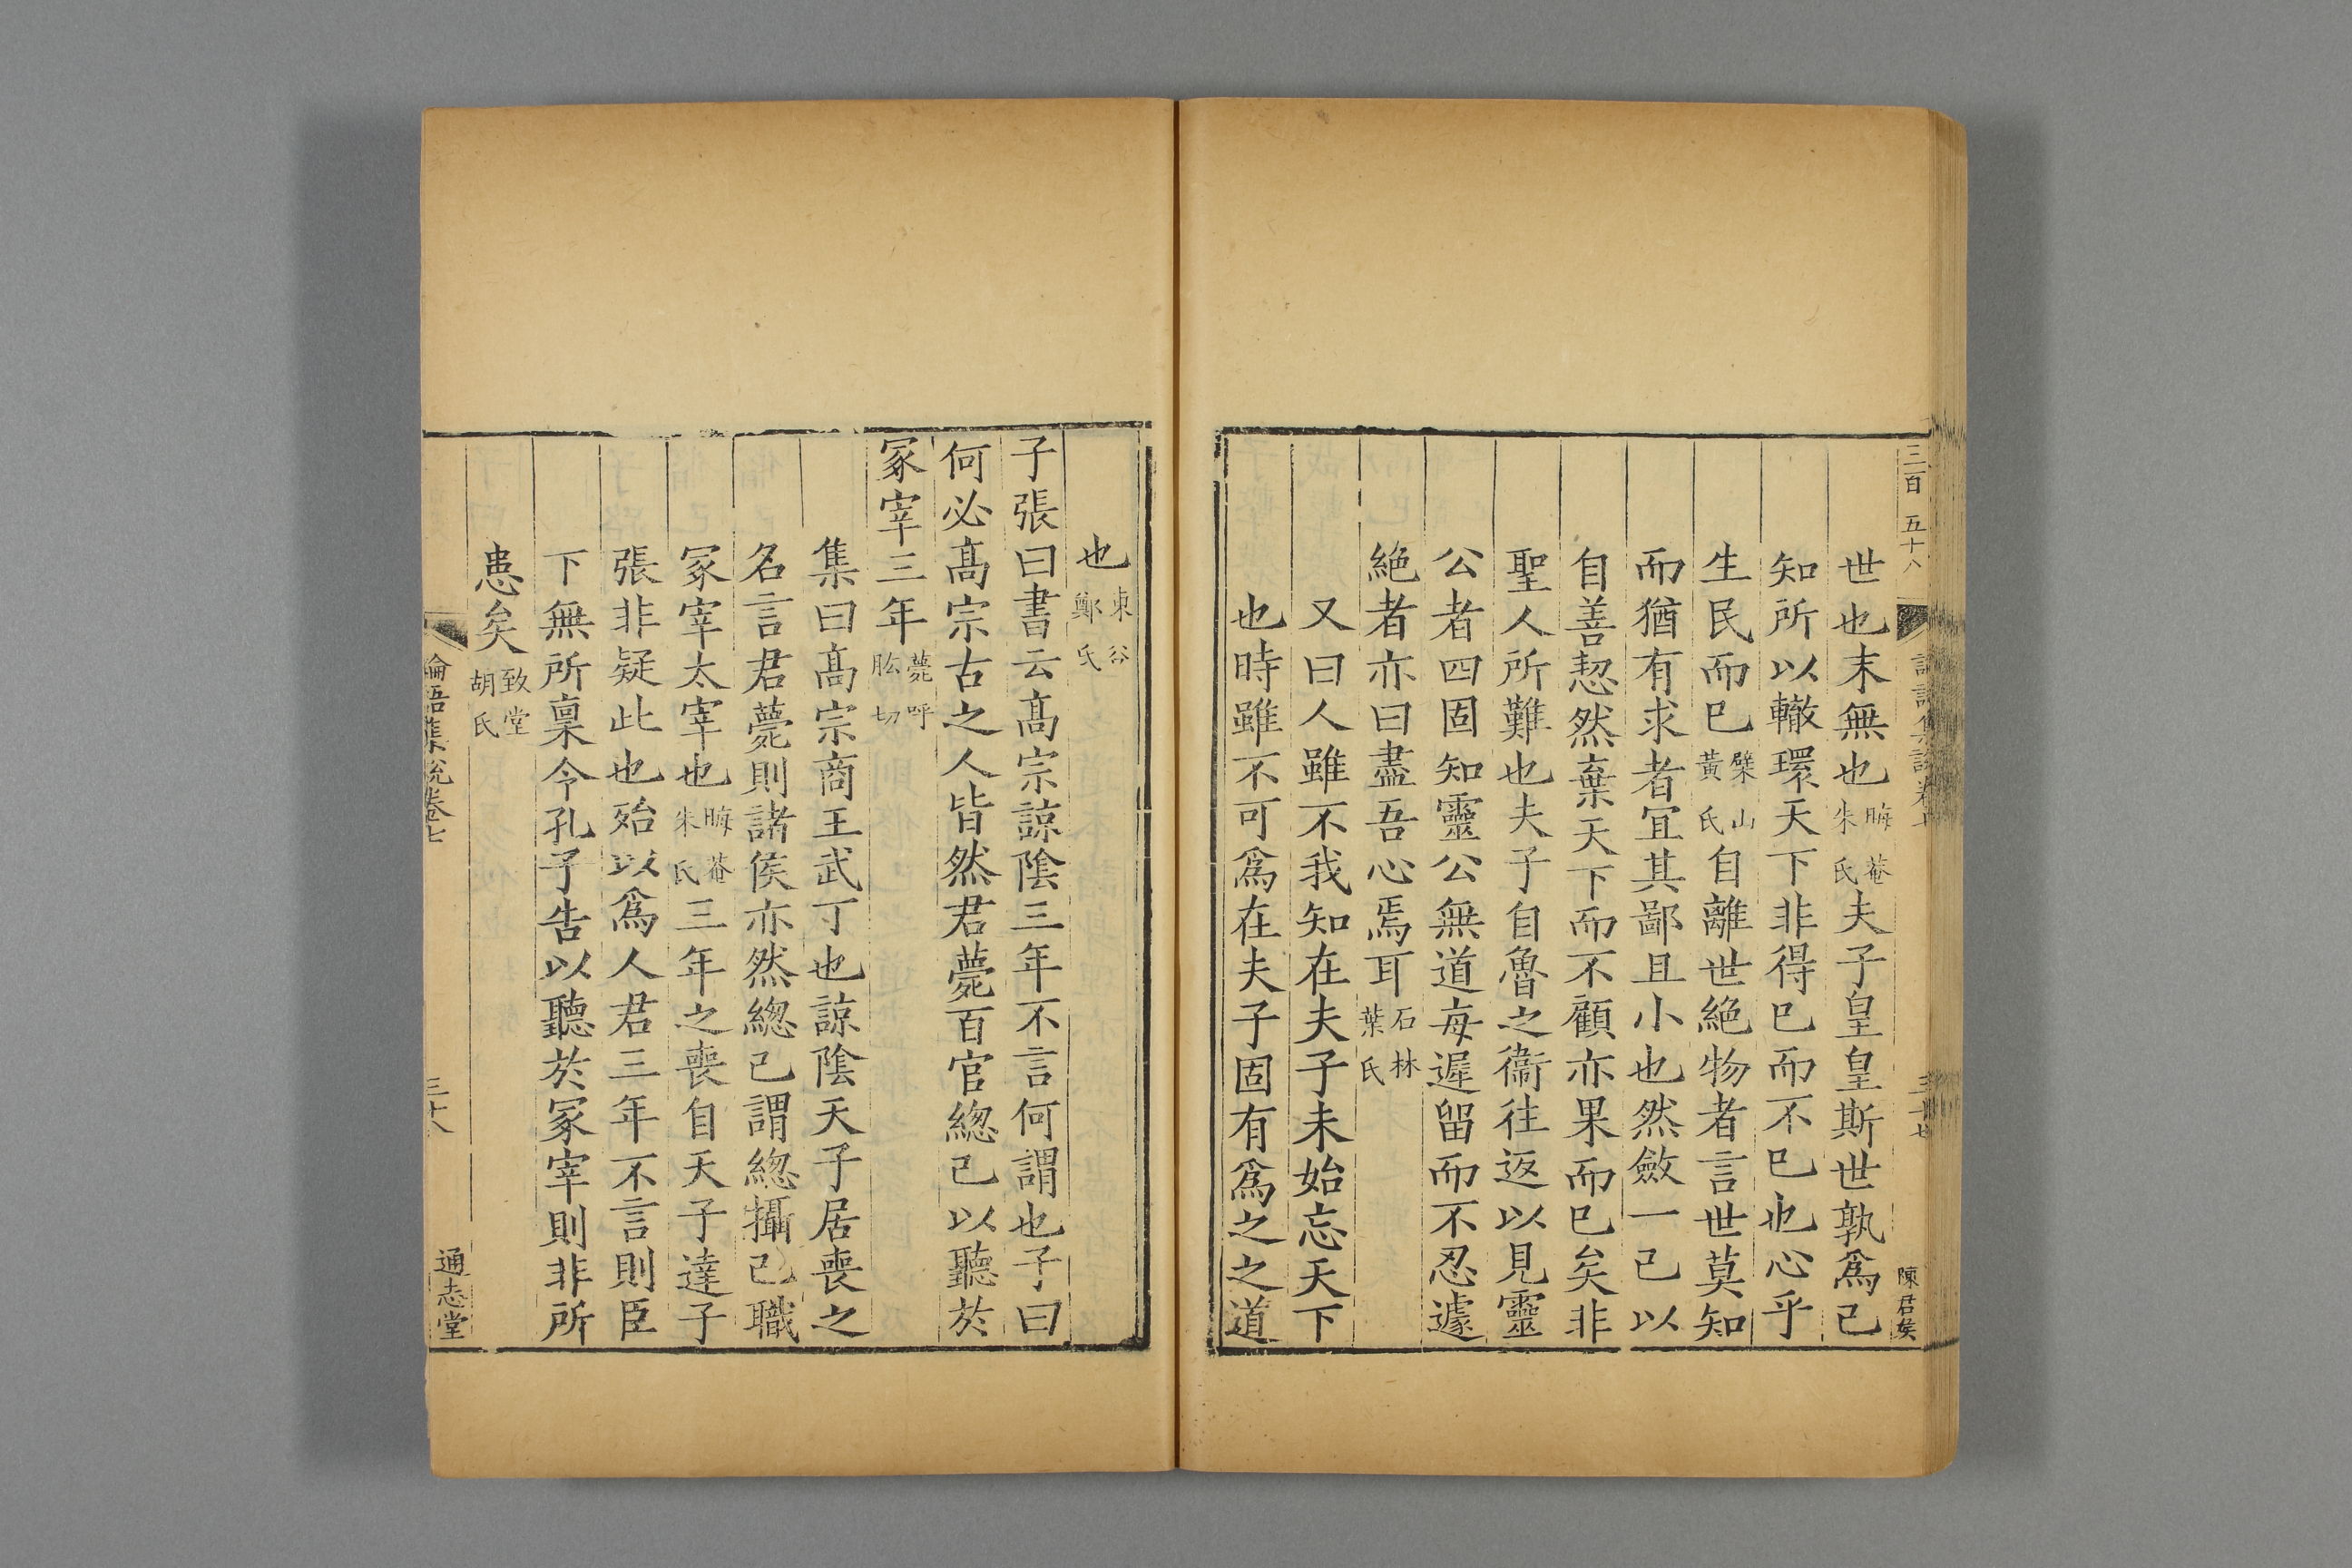 三百五十八
三十七
陳君矦
世也末無也晦菴朱氏夫子皇皇斯世孰爲己
知所以轍環天下非得已而不已也心乎
生民而已檗山黃氏自離世絶物者言世莫知
而猶有求者冝其鄙且小也然斂一己以
自善恝然棄天下而不顧亦果而已矣非
聖人所難也夫子自魯之衞往返以見靈
公者四固知靈公無道每遲留而不忍遽
絶者亦曰盡吾心焉耳石林葉氏
又曰人雖不我知在夫子未始忘天下
也時雖不可爲在夫子固有爲之之道
也東谷鄭氏
子張曰書云髙宗諒陰三年不言何謂也子曰
何必髙宗古之人皆然君薨百官緫己以聽於
冡宰三年薨呼肱切
集曰髙宗商王武丁也諒陰天子居喪之
名言君薨則諸侯亦然緫己謂緫攝己職
冡宰太宰也晦菴朱氏三年之喪自天子達子
張非疑此也殆以爲人君三年不言則臣
下無所稟令孔子告以聽於冡宰則非所
患矣致堂胡氏
論語集說卷七
三十八
通志堂